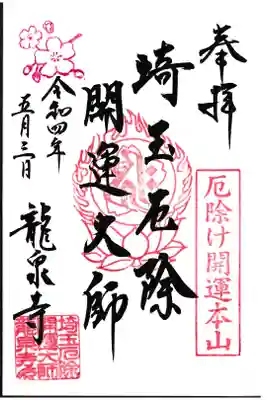 奉拝
厄除け開運本山
埼玉厄除
開運大師
令和四年
五月三日
龍泉寺
埼玉厄除
開運大師
龍泉寺